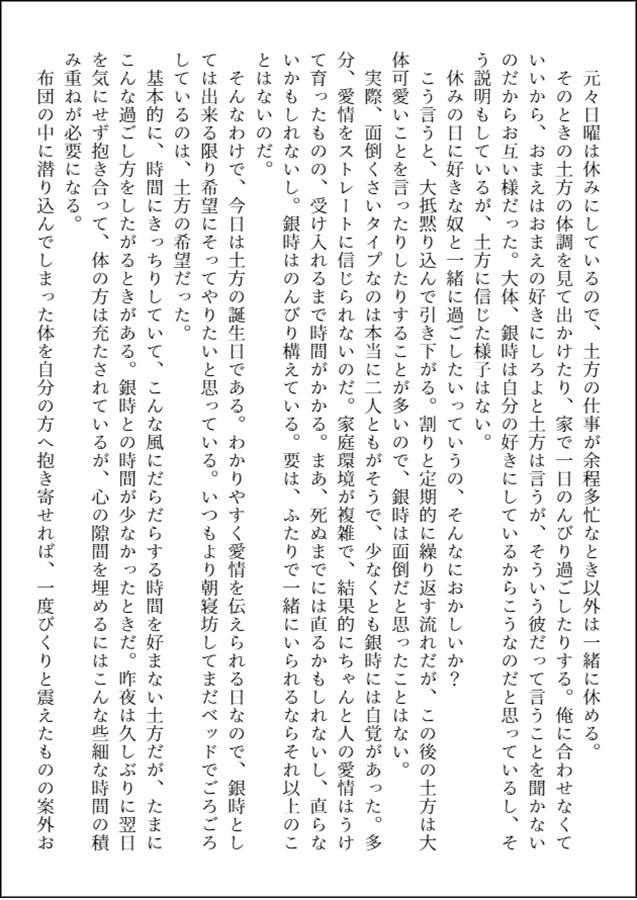 元々日曜は休みにしているので、土方の仕事が余程多忙なとき以外は一緒に休める。
そのときの土方の体調を見て出かけたり、家で一日のんびり過ごしたりする。俺に合わせなくて
いいから、おまえはおまえの好きにしろよと土方は言うが、そういう彼だって言うことを聞かない
のだからお互い様だった。大体、銀時は自分の好きにしているからこうなのだと思っているし、そ
う説明もしているが、土方に信じた様子はない。
休みの日に好きな奴と一緒に過ごしたいっていうの、そんなにおかしいか？
こう言うと、大抵黙り込んで引き下がる。割りと定期的に繰り返す流れだが、この後の土方は大
体可愛いことを言ったりしたりすることが多いので、銀時は面倒だと思ったことはない。
実際、面倒くさいタイプなのは本当に二人ともがそうで、少なくとも銀時には自覚があった。多
分、愛情をストレートに信じられないのだ。家庭環境が複雑で、結果的にちゃんと人の愛情はうけ
て育ったものの、受け入れるまで時間がかかる。まあ、死ぬまでには直るかもしれないし、直らな
いかもしれないし。銀時はのんびり構えている。要は、ふたりで一緒にいられるならそれ以上のこ
とはないのだ。
そんなわけで、今日は土方の誕生日である。わかりやすく愛情を伝えられる日なので、銀時とし
ては出来る限り希望にそってやりたいと思っている。いつもより朝寝坊してまだベッドでごろごろ
しているのは、土方の希望だった。
基本的に、時間にきっちりしていて、こんな風にだらだらする時間を好まない土方だが、たまに
こんな過ごし方をしたがるときがある。銀時との時間が少なかったときだ。昨夜は久しぶりに翌日
を気にせず抱き合って、体の方は充たされているが、心の隙間を埋めるにはこんな些細な時間の積
み重ねが必要になる。
布団の中に潜り込んでしまった体を自分の方へ抱き寄せれば、一度びくりと震えたものの案外お